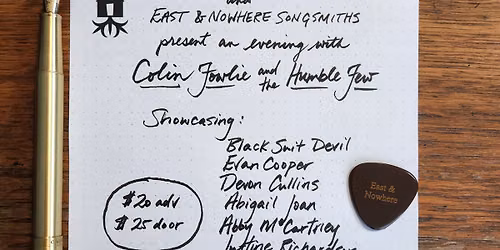 and
EAST & NOWHERE SONGSMITHS
present an evening with
Colin Fowlie and the Humble Few
Showcasing:
Black Suit Devil
Evan Cooper
Devon Cullins
Abigail Joan
Abby McCartney
Justine Richardson
$20 adv
$25 door
East &
Nowhere